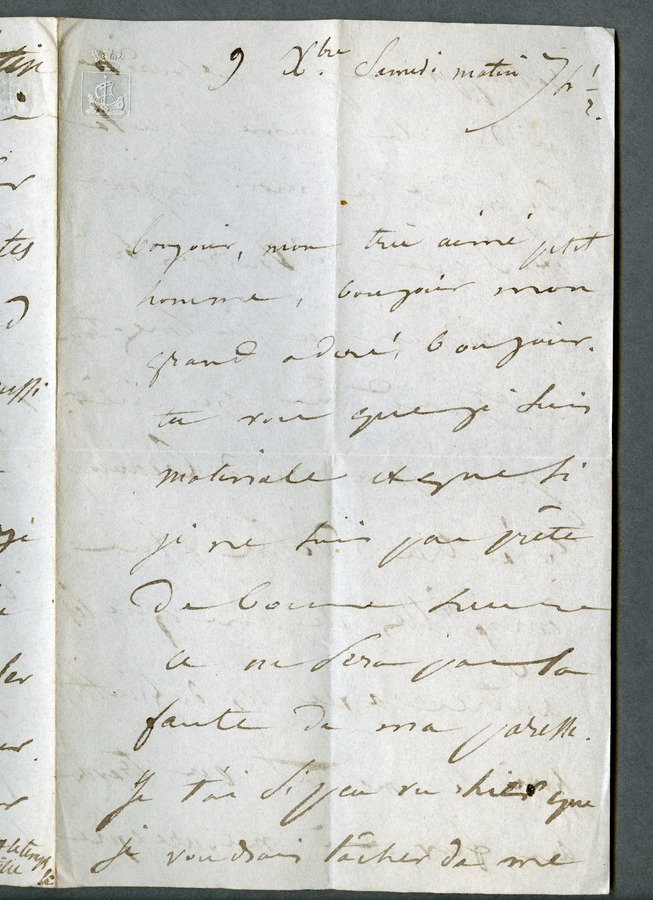 9 Xbre. Samedi matin 7h ½.
bonjour, mon trés aimé petit
homme, bonjour mon
grand adoré, bonjour.
tu vois que je suis
matinale et que si
je ne suis pas prête
de bonne heure
ce ne sera pas la
faute de ma paresse.
Je t'ai si peu vu hier que
je voudrais tâcher de me